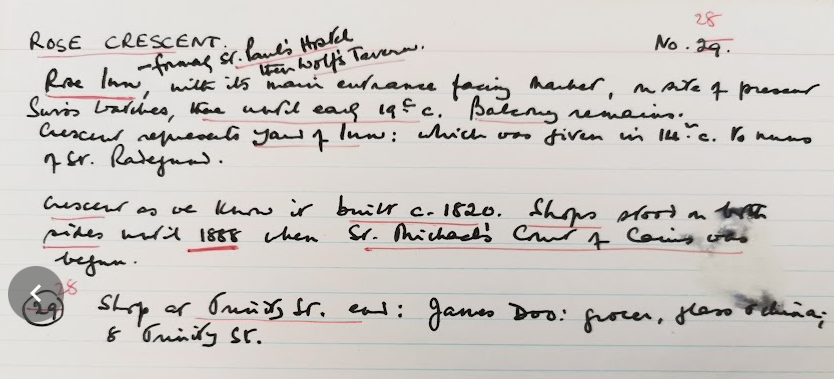 28
ROSE CRESCENT. No. 29.
– formerly St. Paul's Hostel
then Wolf's Tavern.
Rose Inn, with its main entrance facing market, on site of present
Swiss watches, here until early 19th c. Balcony remains.
Crescent represents yard of Inn: which was given in 14th c. to nuns
of St. Radegund.
Crescent as we know it built c. 1820. Shops stood on both
sides until 1888 when St. Michael's Court of Caius was
begun.
28
29 Shop at Trinity St. end: James Doo: grocer, glass & china;
8 Trinity St.